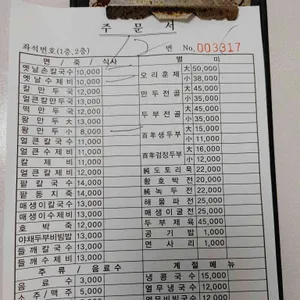 주 문 서
좌석번호(1층,2층) 번 No. 003317
면 / 죽 / 식사
옛날손칼국수 10,000
옛날수제비 10,000
칼만두국 12,000
얼큰칼만두국 13,000
떡만두국 12,000
왕만두 大 13,000
왕만두 小 8,000
얼큰칼국수 11,000
얼큰수제비 11,000
칼제비 11,000
팥칼국수 14,000
팥동지죽 14,000
매생이칼국수 13,000
매생이수제비 13,000
호박죽 12,000
야채두부비빔밥 13,000
들깨칼국수 13,000
들깨수제비 13,000
주류 / 음료수
음료수 3,000
소 / 맥주 5,000
별미
오리훈제 大 50,000
小 38,000
만두전골 大 45,000
小 35,000
두부전골 大 45,000
小 35,000
百年생두부 大
小 11,000
百年검정두부 大 16,000
小 12,000
純도토리묵 22,000
황호박전 20,000
純녹두전 22,000
해물파전 25,000
매생이굴전 25,000
두부제육 45,000
공기밥 1,000
면사리 1,000
계절메뉴
냉콩국수 15,000
열무냉국수 12,000
열무비빔국수 12,000